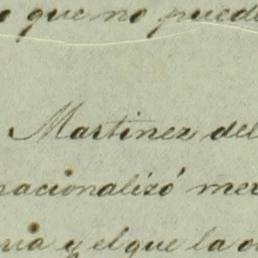 o que no puede
Martinez del
nacionalizó mer
y el que la o